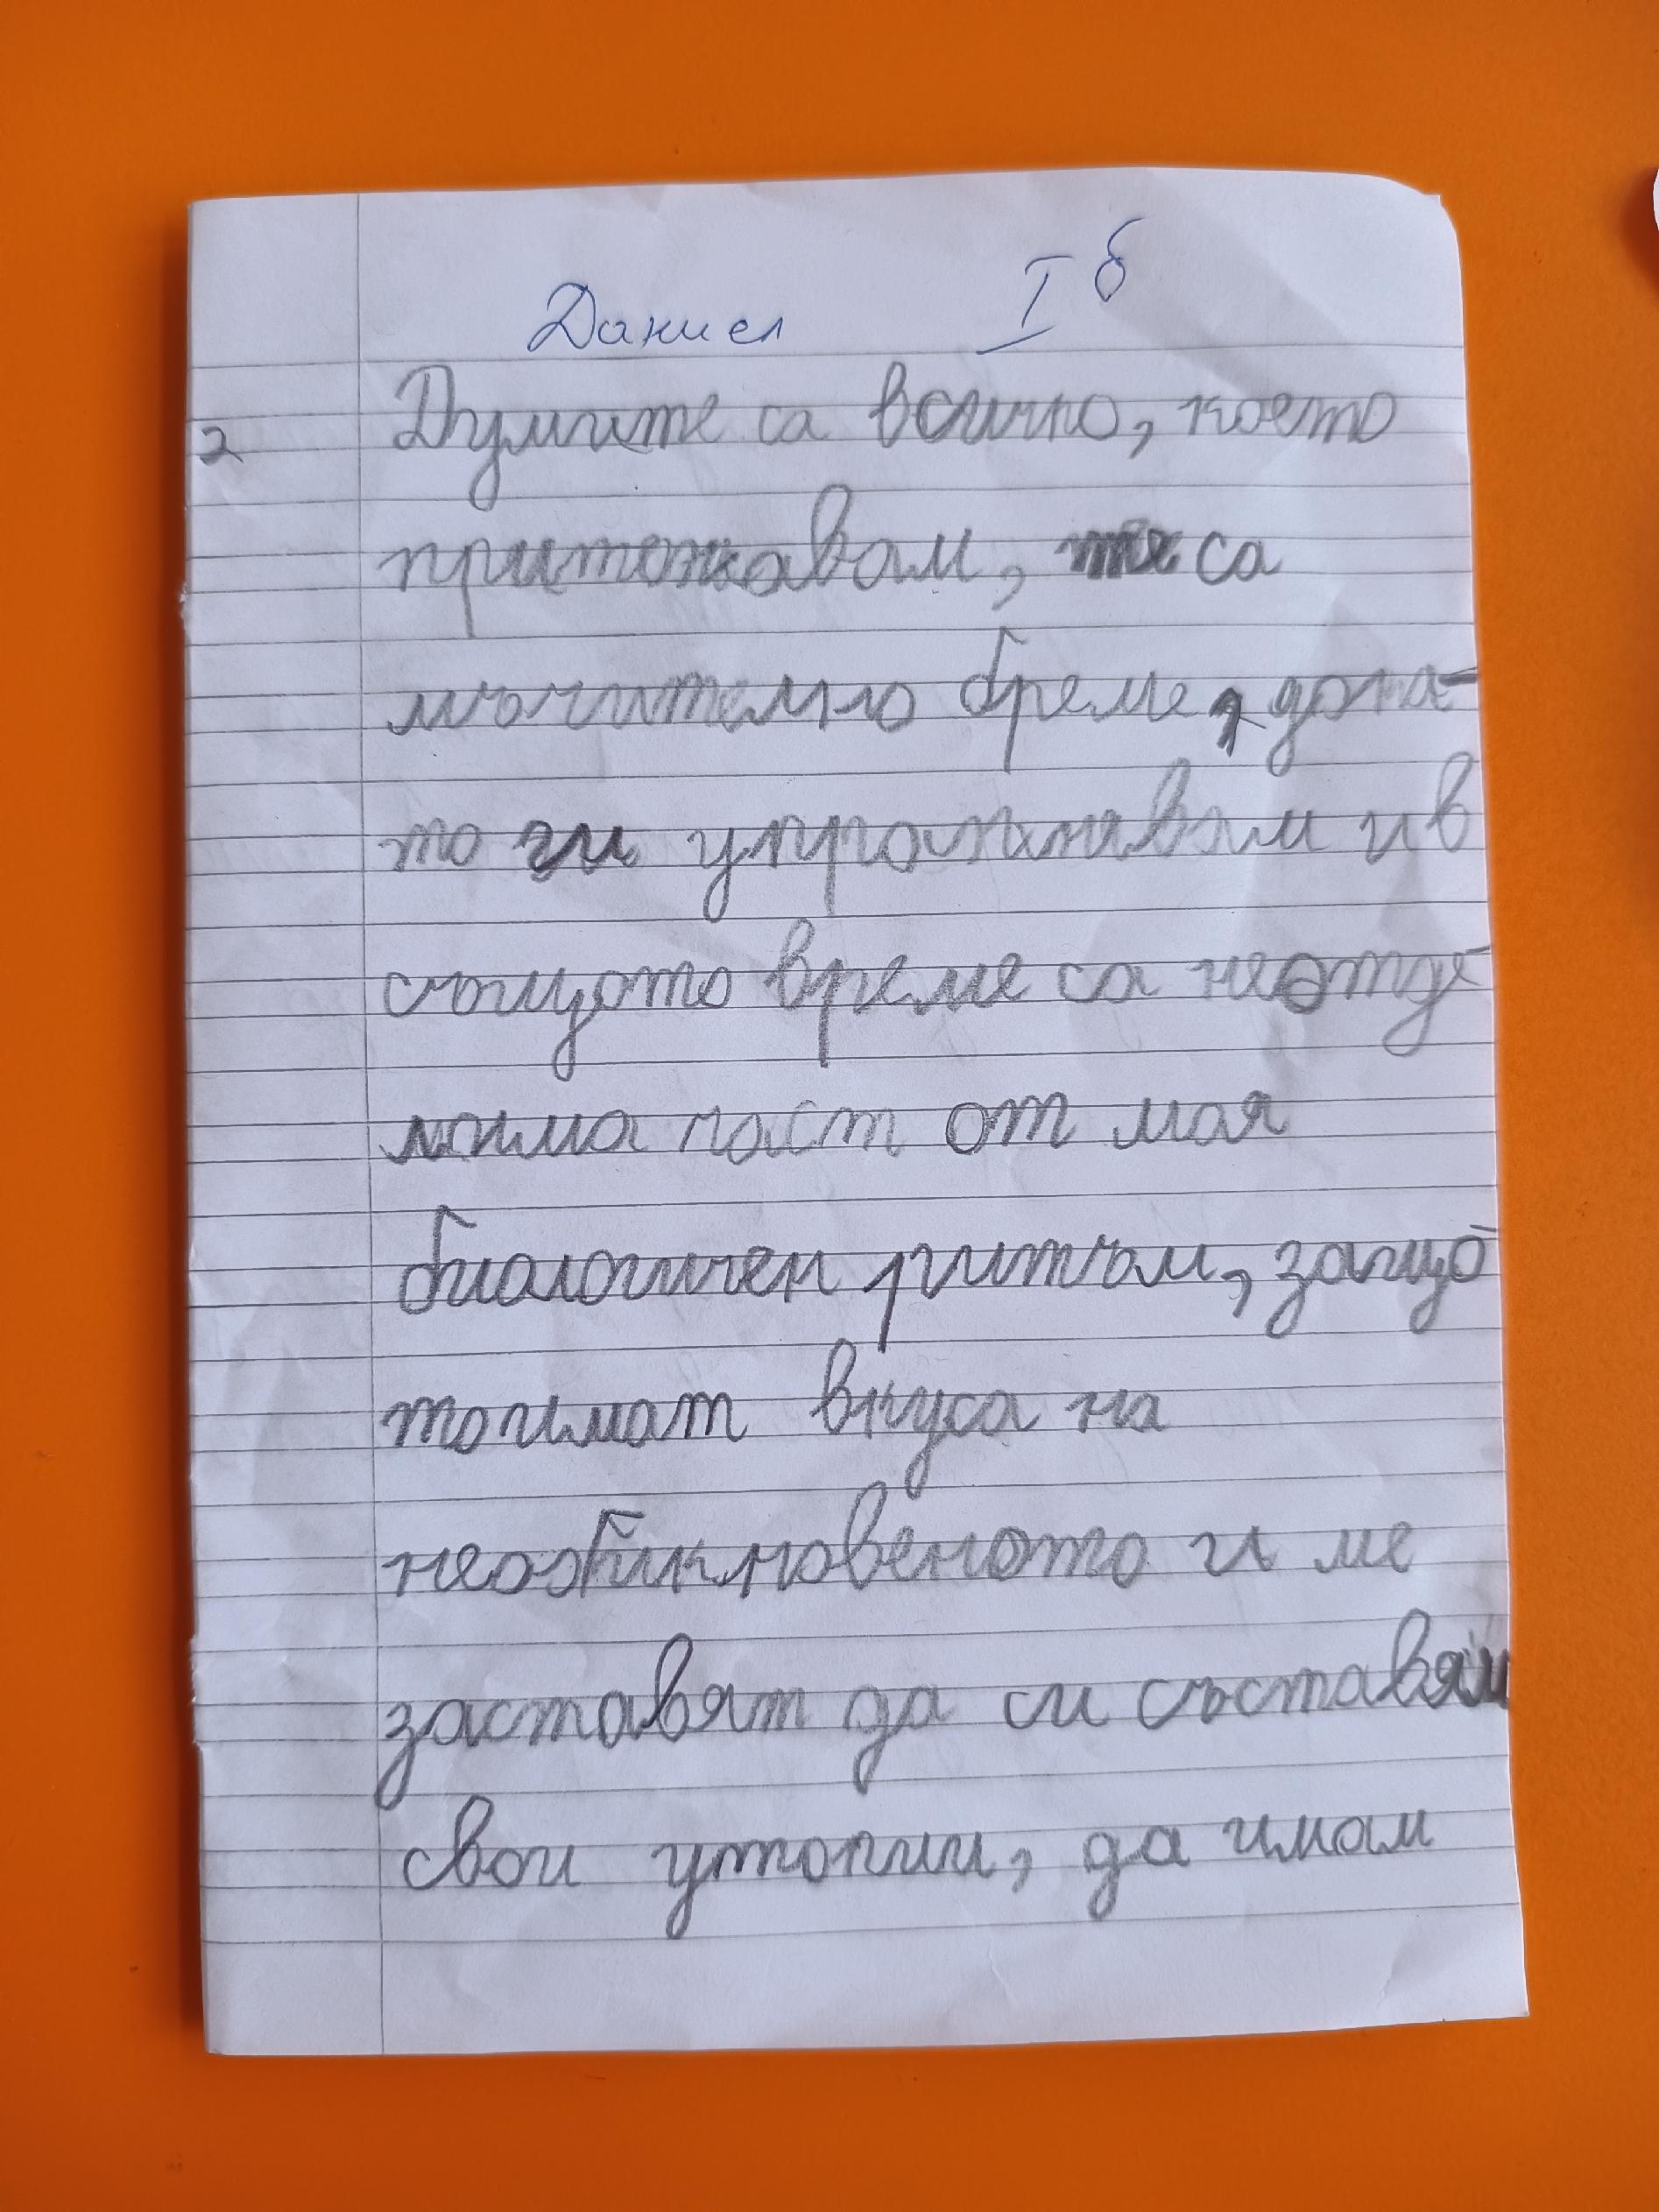 Даниел I б
2 Думите са всичко, което
притежавам, те са
мъчително бреме, дока-
то ги упражнявам и в
същото време са неотде
лима част от моя
биологичен ритъм, защо
то имат вкуса на
необикновеното и ме
заставят да си съставям
свои утопии, да имам